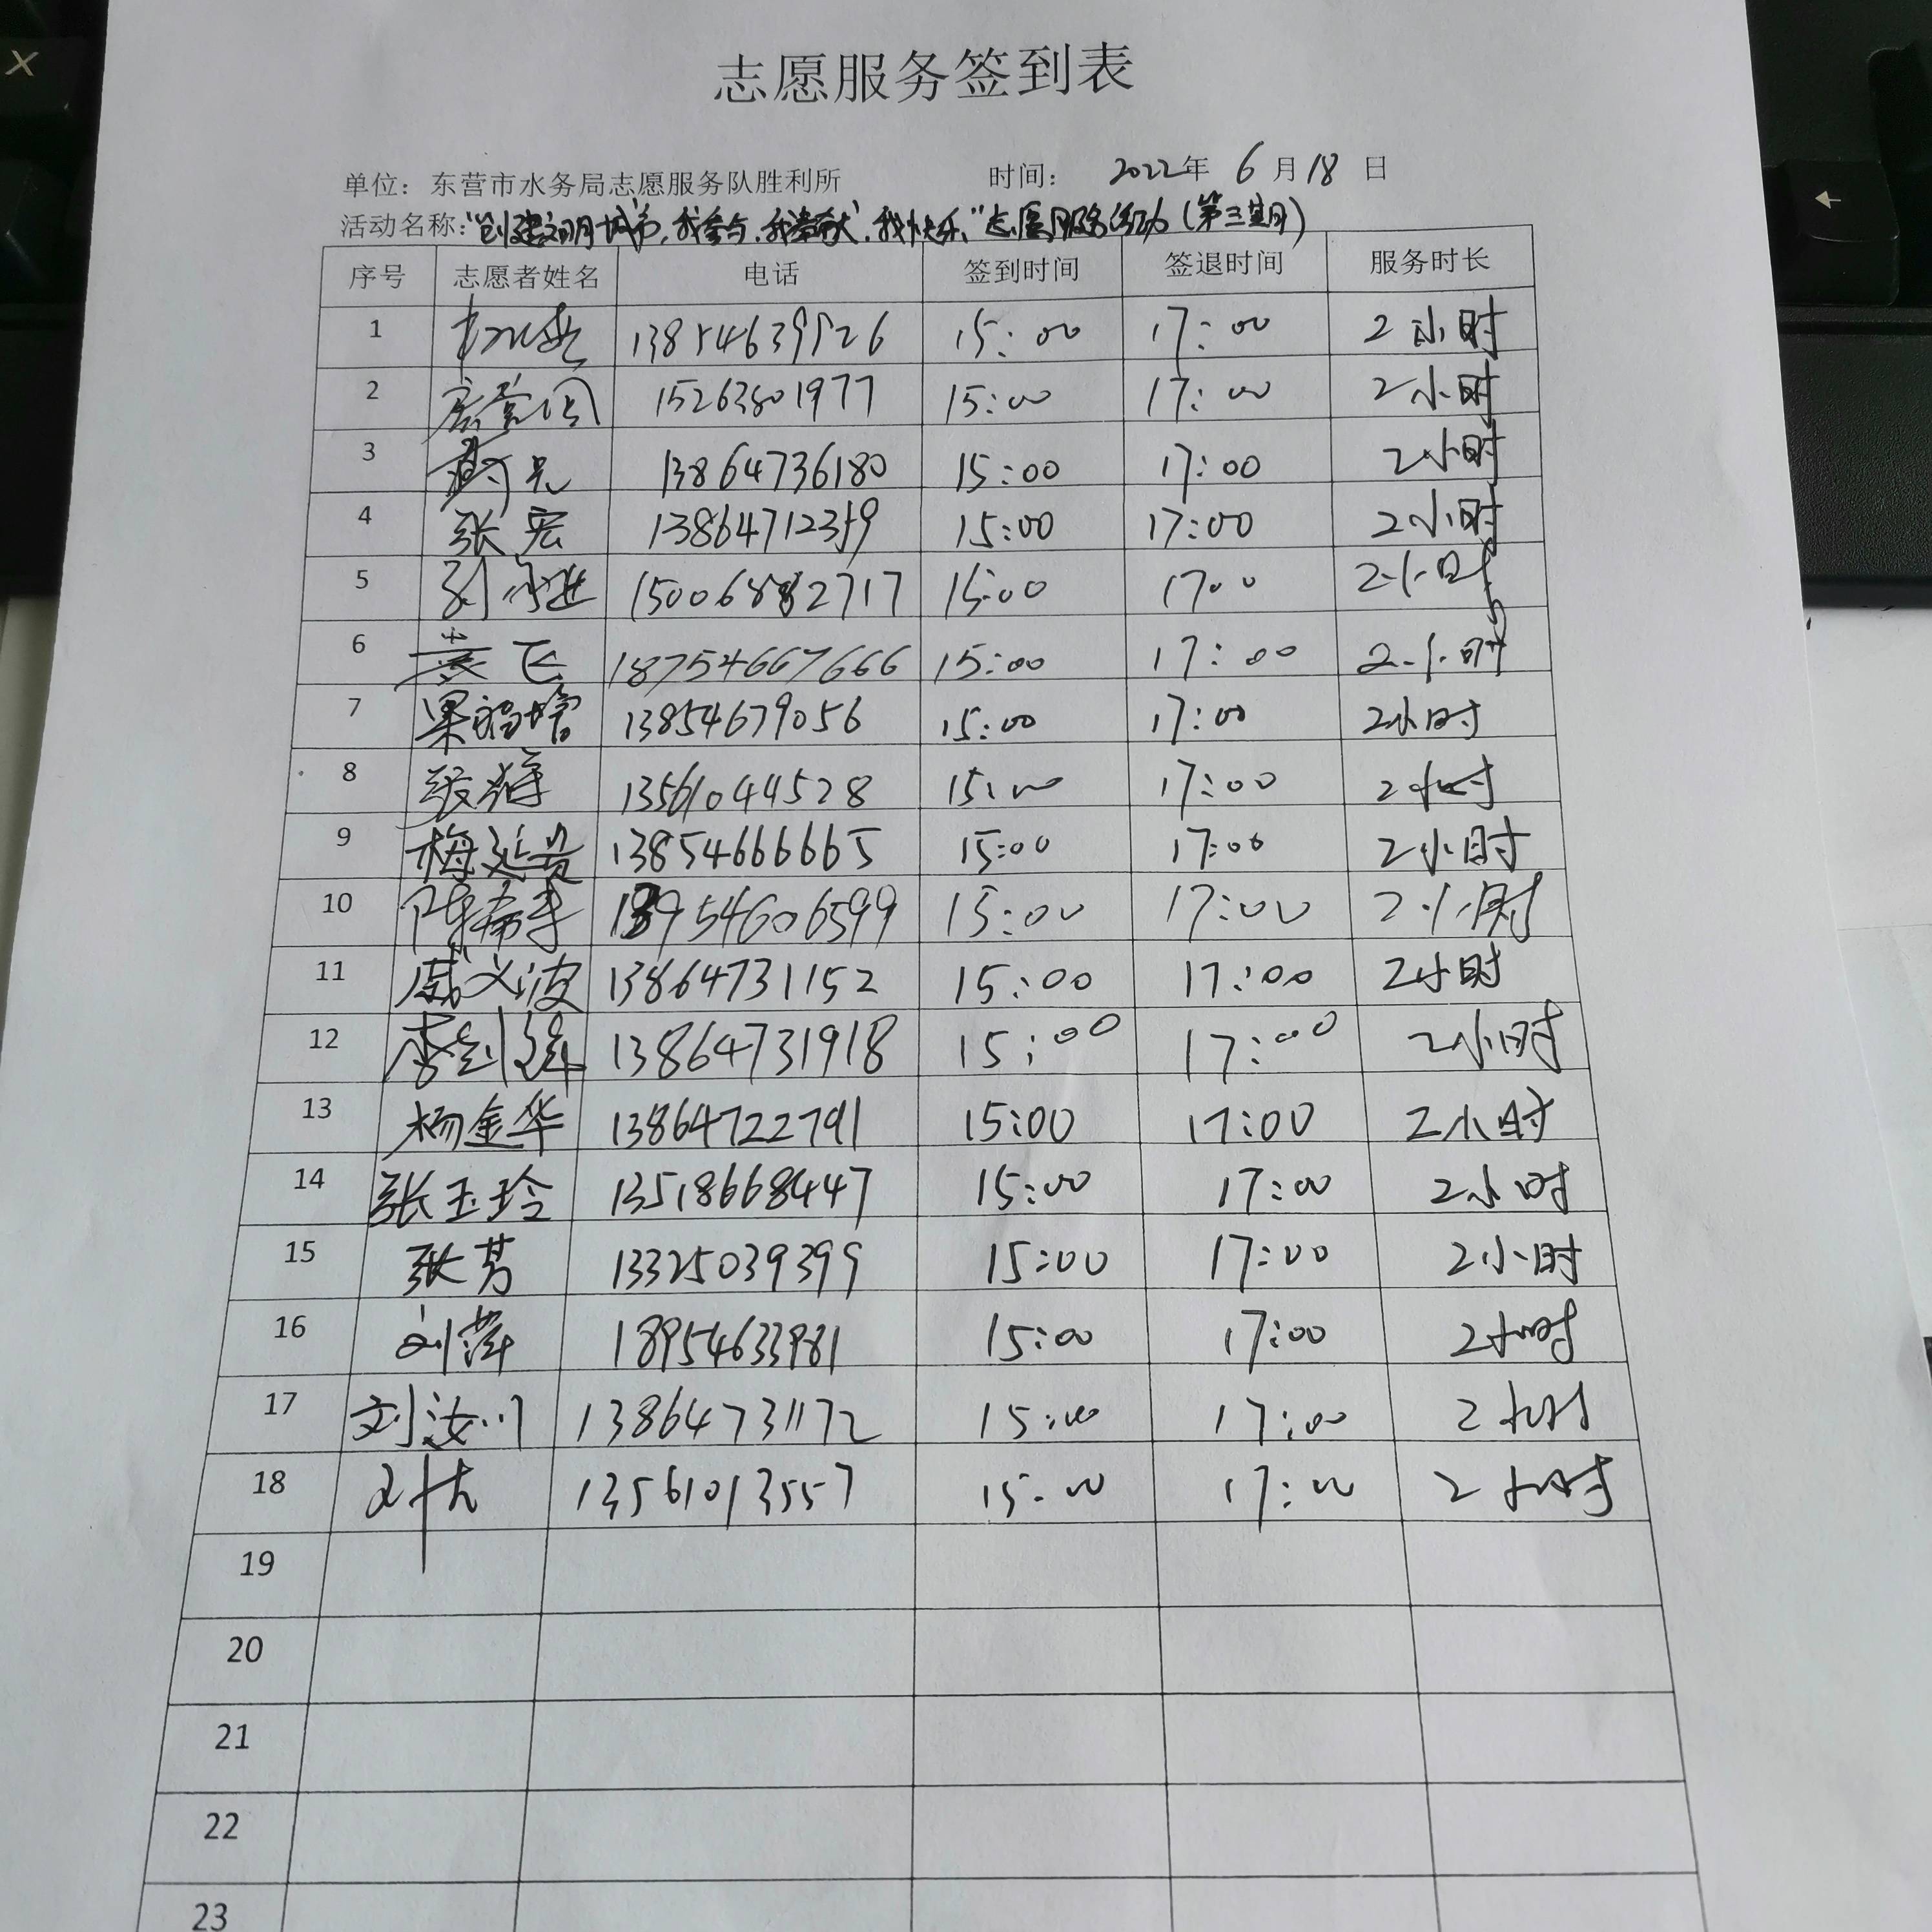 志愿服务签到表
单位：东营市水务局志愿服务队胜利所 时间： 2022年 6月18日
活动名称：“创建文明城市，我参与，我奉献，我快乐”志愿服务活动（第三期）
序号 志愿者姓名 电话 签到时间 签退时间 服务时长
1 13854639526 15:00 17:00 2小时
2 15263801977 15:00 17:00 2小时
3 13864736180 15:00 17:00 2小时
4 张宏 13864712359 15:00 17:00 2小时
5 15:00 17:00 2小时
6 飞 18754667666 15:00 17:00 2小时
7 13854679056 15:00 17:00 2小时
8 13561044528 15:00 17:00 2小时
9 梅延贵 13854666665 15:00 17:00 2小时
10 陈希 13954606599 15:00 17:00 2小时
11 戚义波 13864731152 15:00 17:00 2小时
12 李剑锋 13864731918 15:00 17:00 2小时
13 杨金华 13864722791 15:00 17:00 2小时
14 张玉玲 13518668447 15:00 17:00 2小时
15 张芳 13325039399 15:00 17:00 2小时
16 刘萍 18954633981 15:00 17:00 2小时
17 刘汝川 13864731172 15:00 17:00 2小时
18 13561013557 15:00 17:00 2小时
19
20
21
22
23